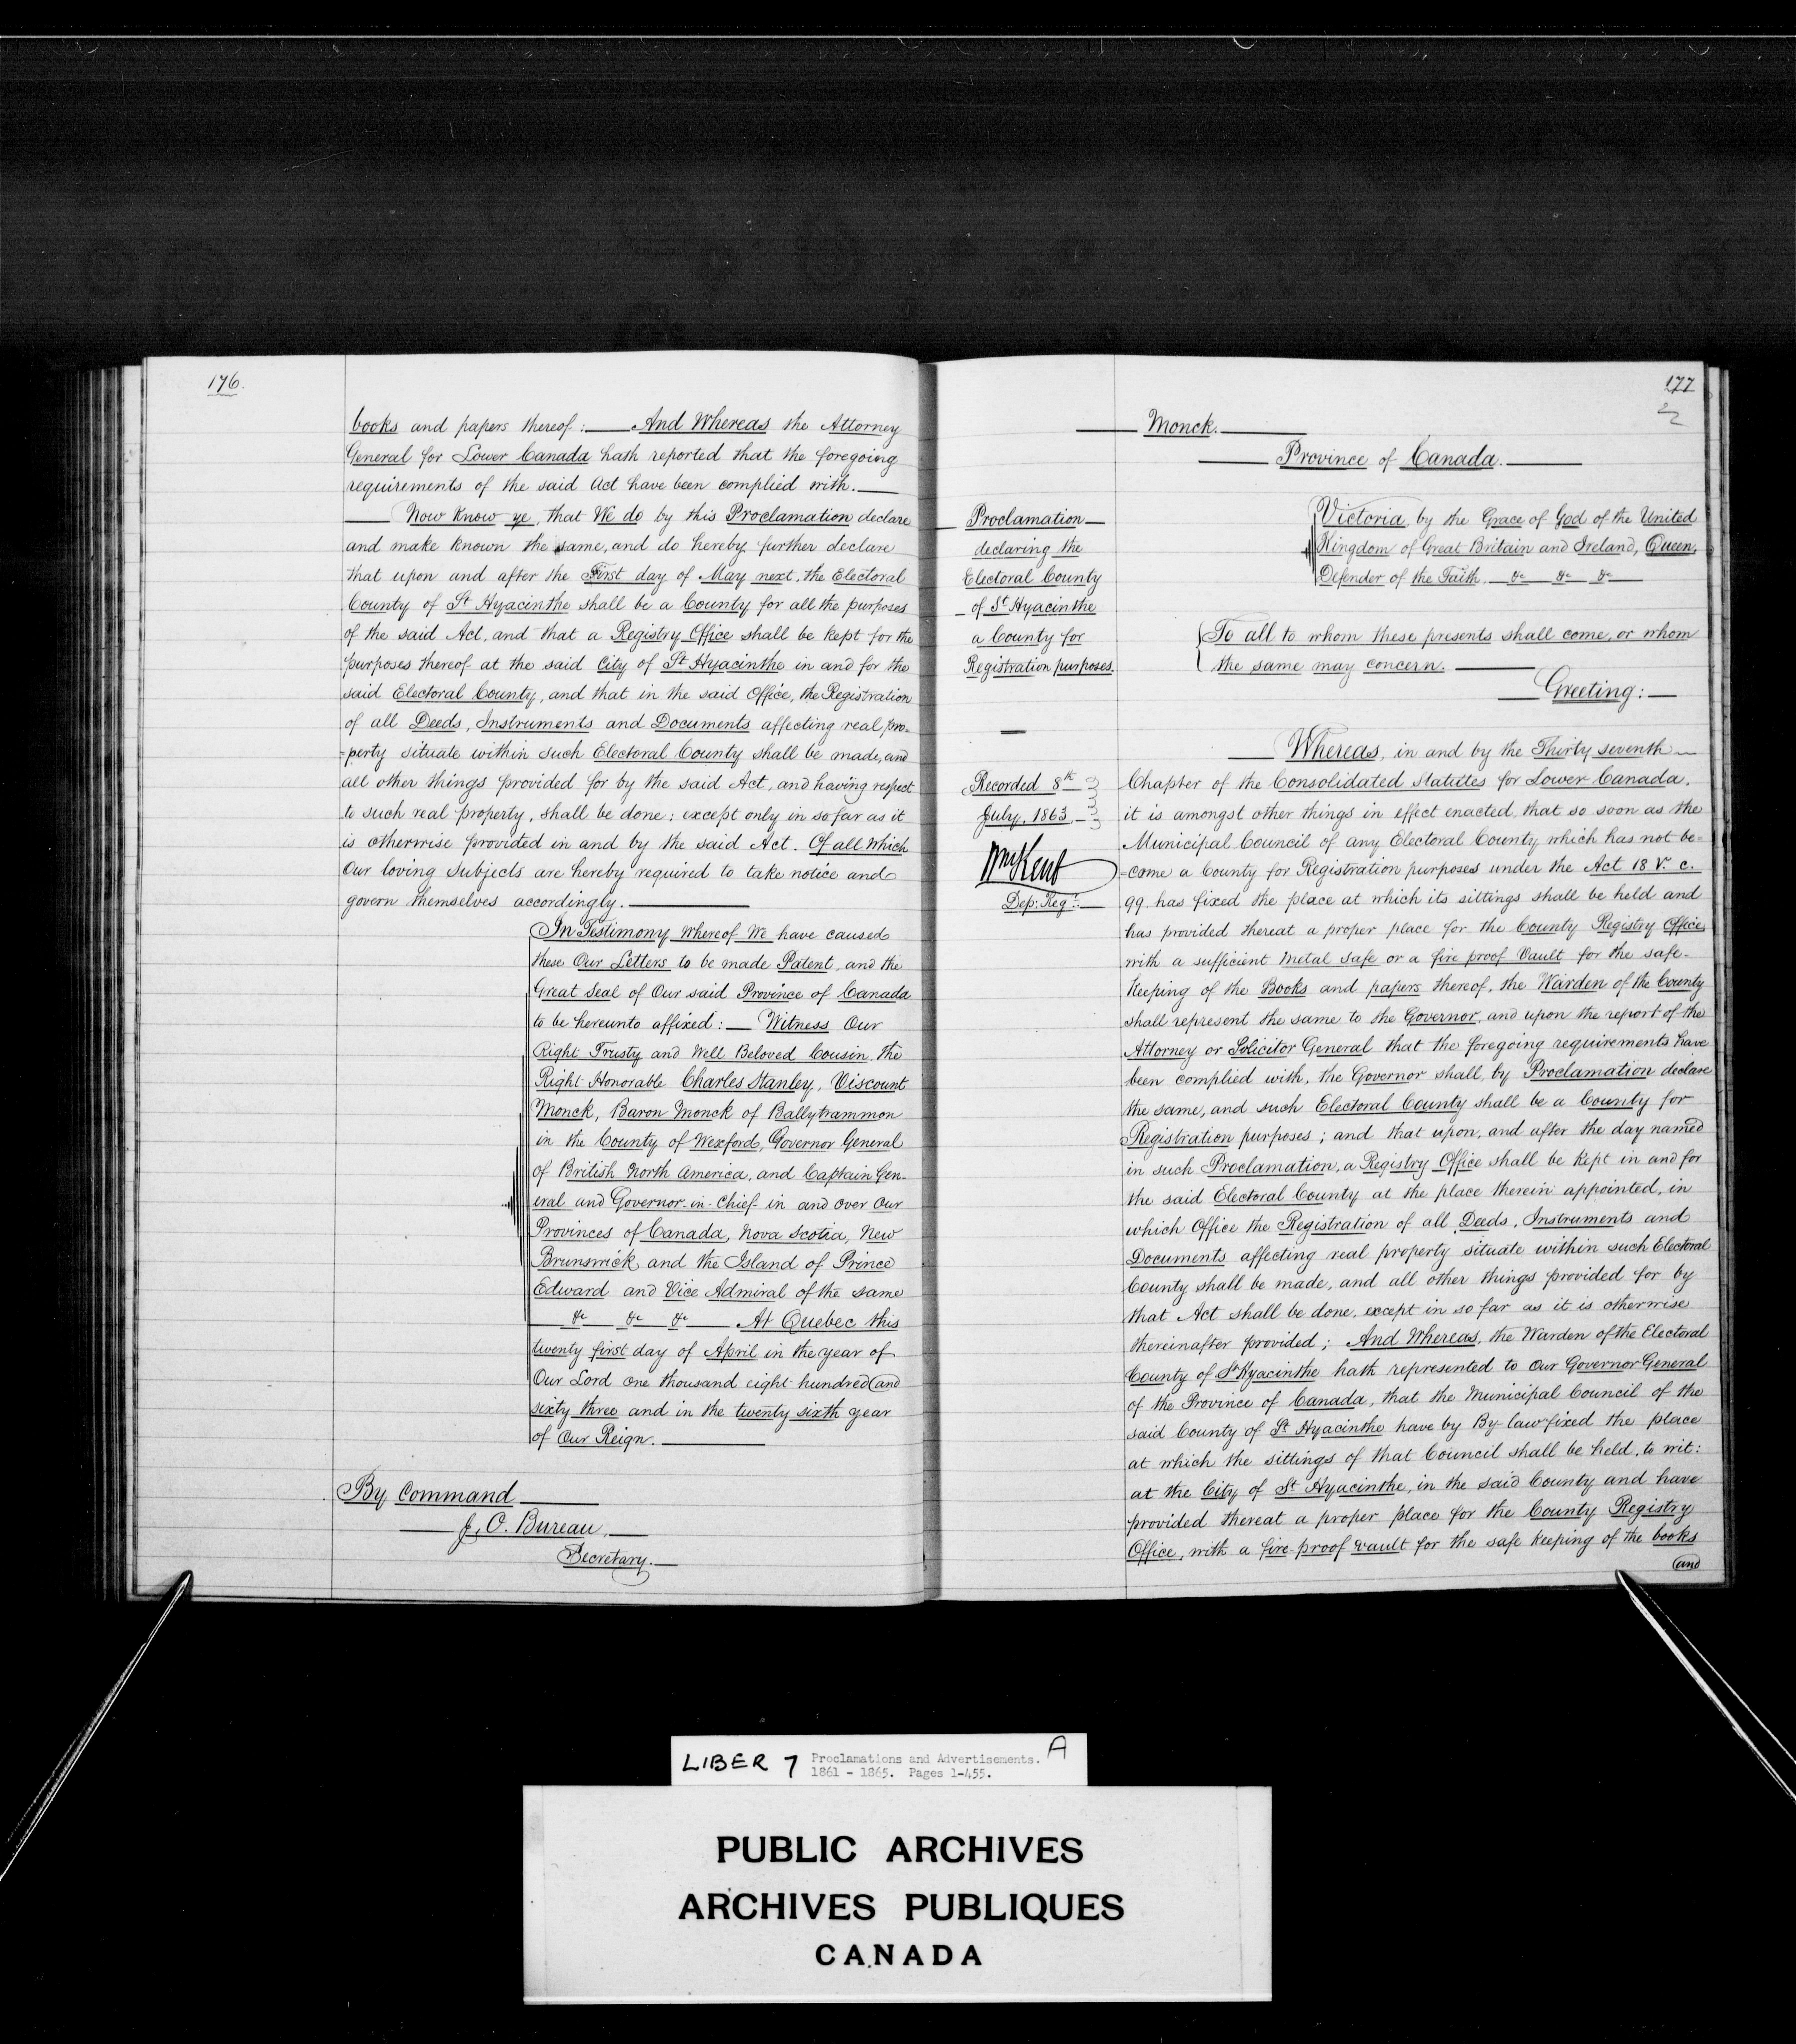 176.
books and papers thereof: And Whereas the Attorney
General for Lower Canada hath reported that the foregoing
requirements of the said Act have been complied with.
Now Know ye, that We do by this Proclamation declare
and make known the same, and do hereby further declare
that upon and after the First day of May next, the Electoral
County of St Hyacinthe shall be a County for all the purposes
of the said Act, and that a Registry Office shall be kept for the
purposes thereof at the said City of St Hyacinthe in and for the
said Electoral County, and that in the said Office, the Registration
of all Deeds, Instruments and Documents affecting real pro-
-perty situate within such Electoral County shall be made, and
all other things provided for by the said Act, and having respect
to such real property, shall be done; except only in so far as it
is otherwise provided in and by the said Act. Of all which
Our loving Subjects are hereby required to take notice and
govern themselves accordingly.
In Testimony Whereof We have caused
these Our Letters to be made Patent, and the
Great Seal of Our said Province of Canada
to be hereunto affixed: Witness Our
Right Trusty and Well Beloved Cousin the
Right Honorable Charles Stanley, Viscount
Monck, Baron Monck of Ballytrammon
in the County of Wexford, Governor General
of British North America, and Captain Gen-
eral and Governor-in-Chief in and over Our
Provinces of Canada, Nova Scotia, New
Brunswick and the Island of Prince
Edward and Vice Admiral of the same
&c &c &c At Quebec this
twenty first day of April in the year of
Our Lord one thousand eight hundred and
sixty three and in the twenty sixth year
of Our Reign.
By Command
J, O. Bureau,
Secretary.
177
Monck.
Province of Canada.
Proclamation
declaring the
Electoral County
of St Hyacinthe
a County for
Registration purposes.
Recorded 8th
July, 1863.
Wm Kent
Dep: Regr.
Victoria, by the Grace of God of the United
Kingdom of Great Britain and Ireland, Queen,
Defender of the Faith, &c &c &c
To all to whom these presents shall come, or whom
the same may concern.
Greeting:
Whereas, in and by the Thirty seventh
Chapter of the Consolidated Statutes for Lower Canada,
it is amongst other things in effect enacted, that so soon as the
Municipal Council of any Electoral County which has not be-
-come a County for Registration purposes under the Act 18 V. c.
99 has fixed the place at which its sittings shall be held and
has provided thereat a proper place for the County Registry Office,
with a sufficient Metal Safe or a fire proof Vault for the safe-
Keeping of the Books and papers thereof, the Warden of the County
shall represent the same to the Governor, and upon the report of the
Attorney or Solicitor General that the foregoing requirements have
been complied with, the Governor shall, by Proclamation declare
the same, and such Electoral County shall be a County for
Registration purposes; and that upon, and after the day named
in such Proclamation, a Registry Office shall be kept in and for
the said Electoral County at the place therein appointed, in
which Office the Registration of all Deeds, Instruments and
Documents affecting real property situate within such Electoral
County shall be made, and all other things provided for by
that Act shall be done, except in so far as it is otherwise
thereinafter provided; And Whereas, the Warden of the Electoral
County of St Hyacinthe hath represented to Our Governor General
of the Province of Canada, that the Municipal Council of the
said County of St Hyacinthe have by By-law fixed the place
at which the sittings of that Council shall be held, to wit:
at the City of St Hyacinthe, in the said County and have
provided thereat a proper place for the County Registry
Office, with a fire-proof vault for the safe keeping of the books
and
LIBER 7 Proclamations and Advertisements. A
1861 - 1865. Pages 1-455.
PUBLIC ARCHIVES
ARCHIVES PUBLIQUES
CANADA